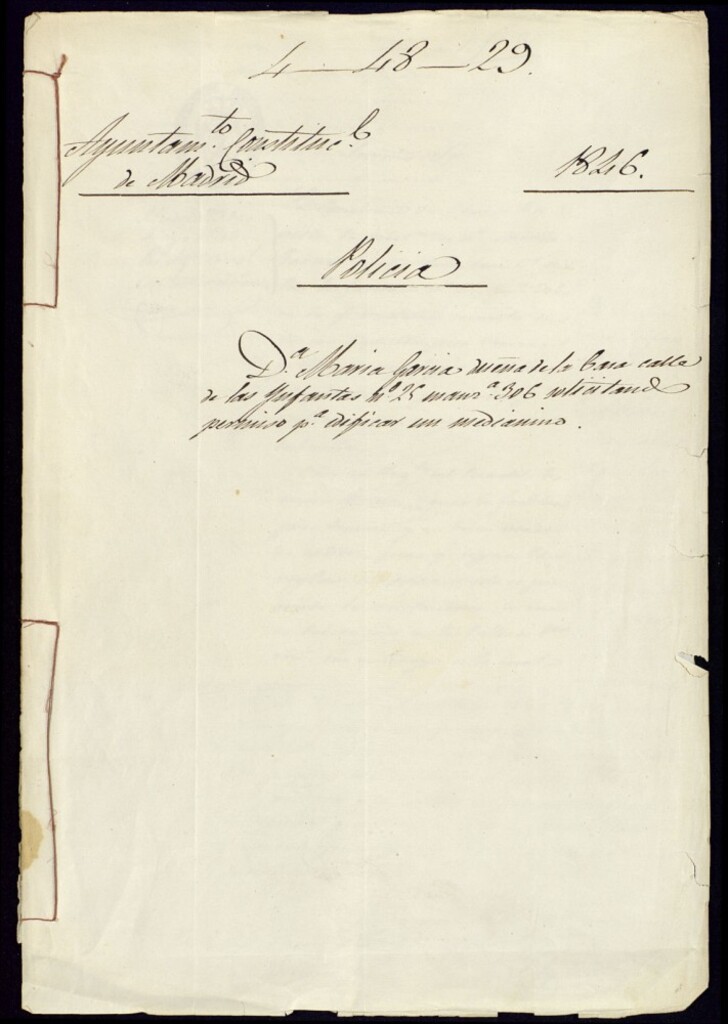 4-48-29.
Ayuntam.to Constituc.l
de Madrid
1846.
Policia
D.a Maria Garcia dueña de la Casa calle
de las Ynfantas n.o 25 manz.a 306 solicitand
permiso p.a edificar un medianino.